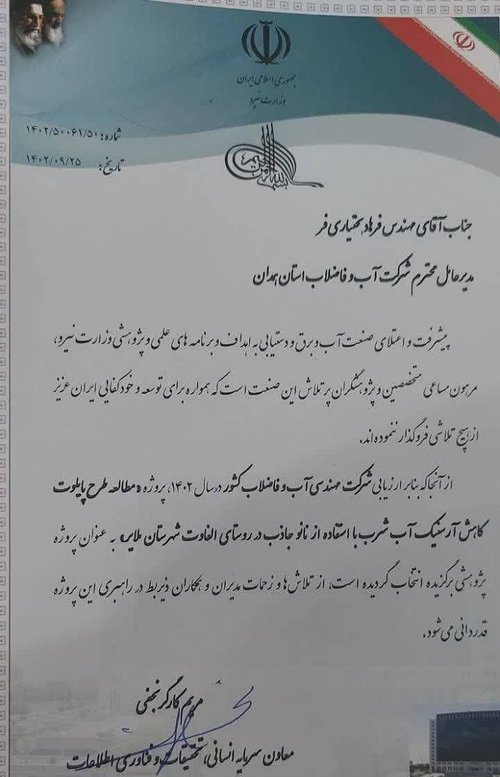 جمهوری اسلامی ایران
وزارت نیرو
شماره: ۱۴۰۲/۵۰۰۶۱/۵۰
تاریخ: ۱۴۰۲/۰۹/۲۵
جناب آقای مهندس فرهاد بختیاری فر
مدیرعامل محترم شرکت آب و فاضلاب استان همدان
پیشرفت و اعتلای صنعت آب و برق و دستیابی به اهداف و برنامه های علمی و پژوهشی وزارت نیرو،
مرهون مساعی متخصصین و پژوهشگران پر تلاش این صنعت است که همواره برای توسعه و خودکفایی ایران عزیز
از هیچ تلاشی فروگذار ننموده اند.
از آنجا که بنابر ارزیابی شرکت مهندسی آب و فاضلاب کشور در سال ۱۴۰۲، پروژه «مطالعه طرح پایلوت
کاهش آرسنیک آب شرب با استفاده از نانو جاذب در روستای الفاوت شهرستان ملایر» به عنوان پروژه
پژوهشی برگزیده انتخاب گردیده است، از تلاش ها و زحمات مدیران و همکاران ذیربط در راهبری این پروژه
قدردانی می شود.
مریم کارگر نجفی
معاون سرمایه انسانی، تحقیقات و فناوری اطلاعات